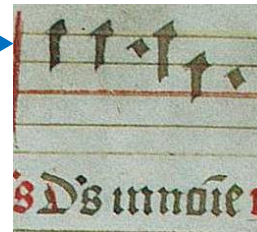 s D's innoīe